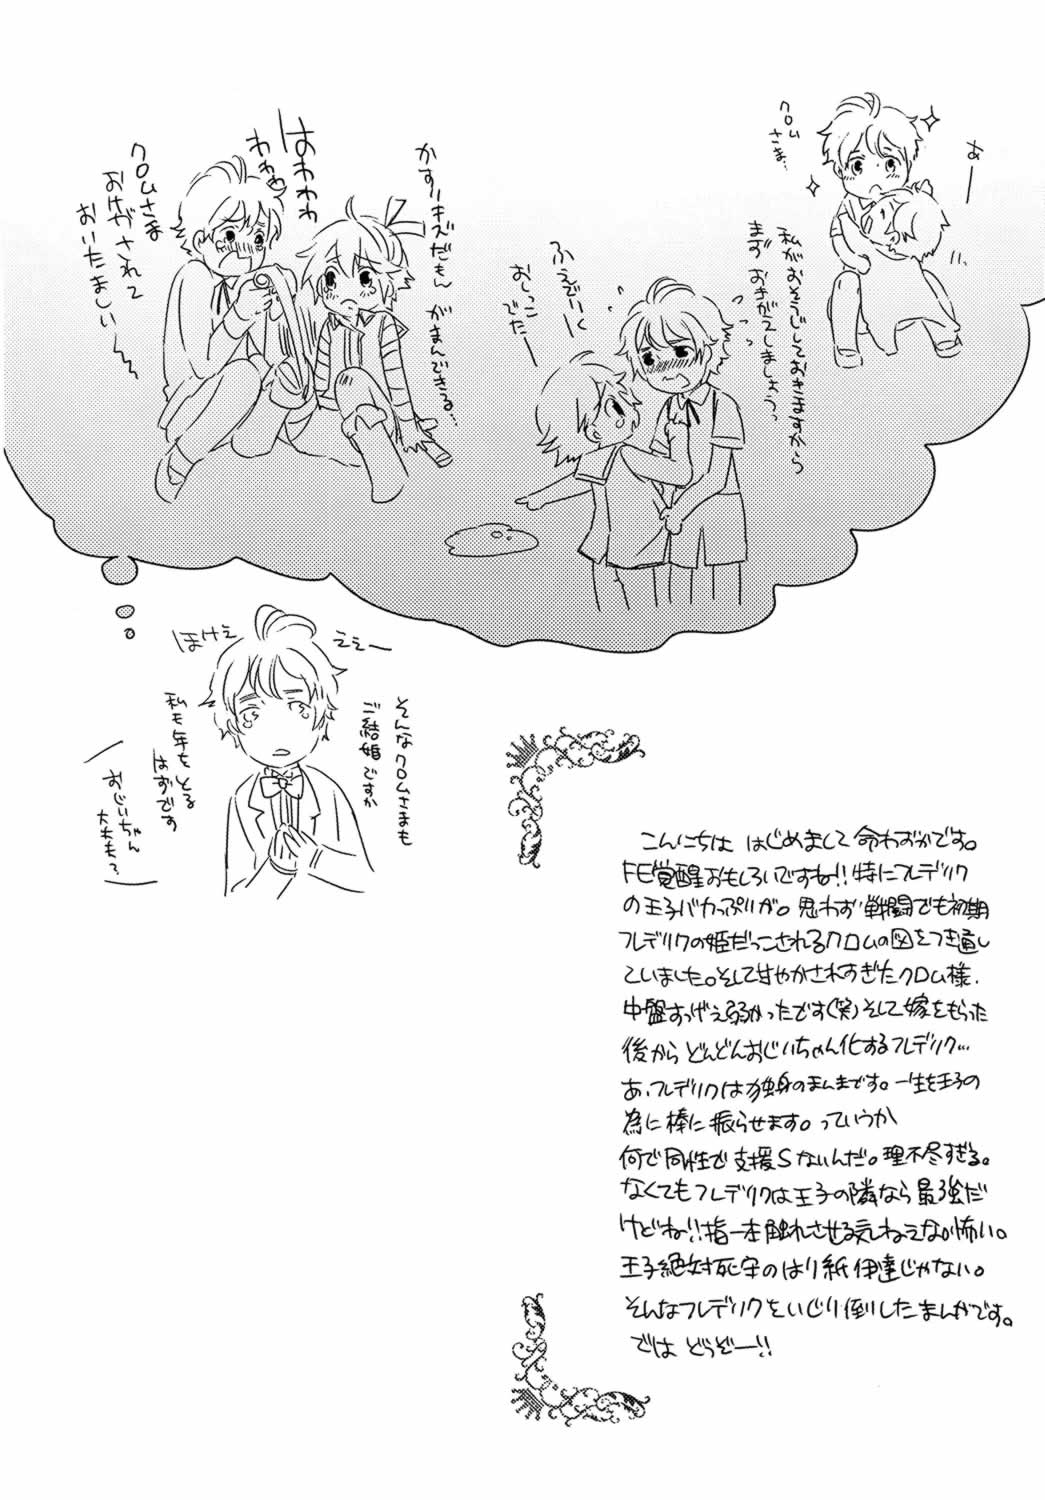 クロム
さま…
あー
私がおそうじしておきますから
まず おきがえしましょうっ
ふぇでぃく
おしっこ
でたー
かすりキズだもん がまんできる…
はわわわ
わわわ
クロムさま
おけがされて
おいたましいー
ほけぇ
ええー
そんなクロムさまも
ご結婚ですか
私も年をとる
はずです
おじいちゃん
大丈夫?
こんにちは はじめまして 命わずかです。
FE覚醒おもしろいですね!!特にフレデリク
の王子バカっぷりが。思わず戦闘でも初期
フレデリクの姫だっこされるクロムの図をつき通し
ていました。そして甘やかされすぎたクロム様、
中盤すっげぇ弱かったです(笑)そして嫁をもらった
後から どんどんおじいちゃん化するフレデリク…
あ、フレデリクは独身のまんまです。一生を王子の
為に棒に振らせます。っていうか
何で同性で支援Sないんだ。理不尽すぎる。
なくてもフレデリクは王子の隣なら最強だ
けどね!!指一本触れさせる気ねえなか怖い。
王子絶対死守のはり紙伊達じゃない。
そんなフレデリクをいじり倒したまんがです。
では どうぞー!!